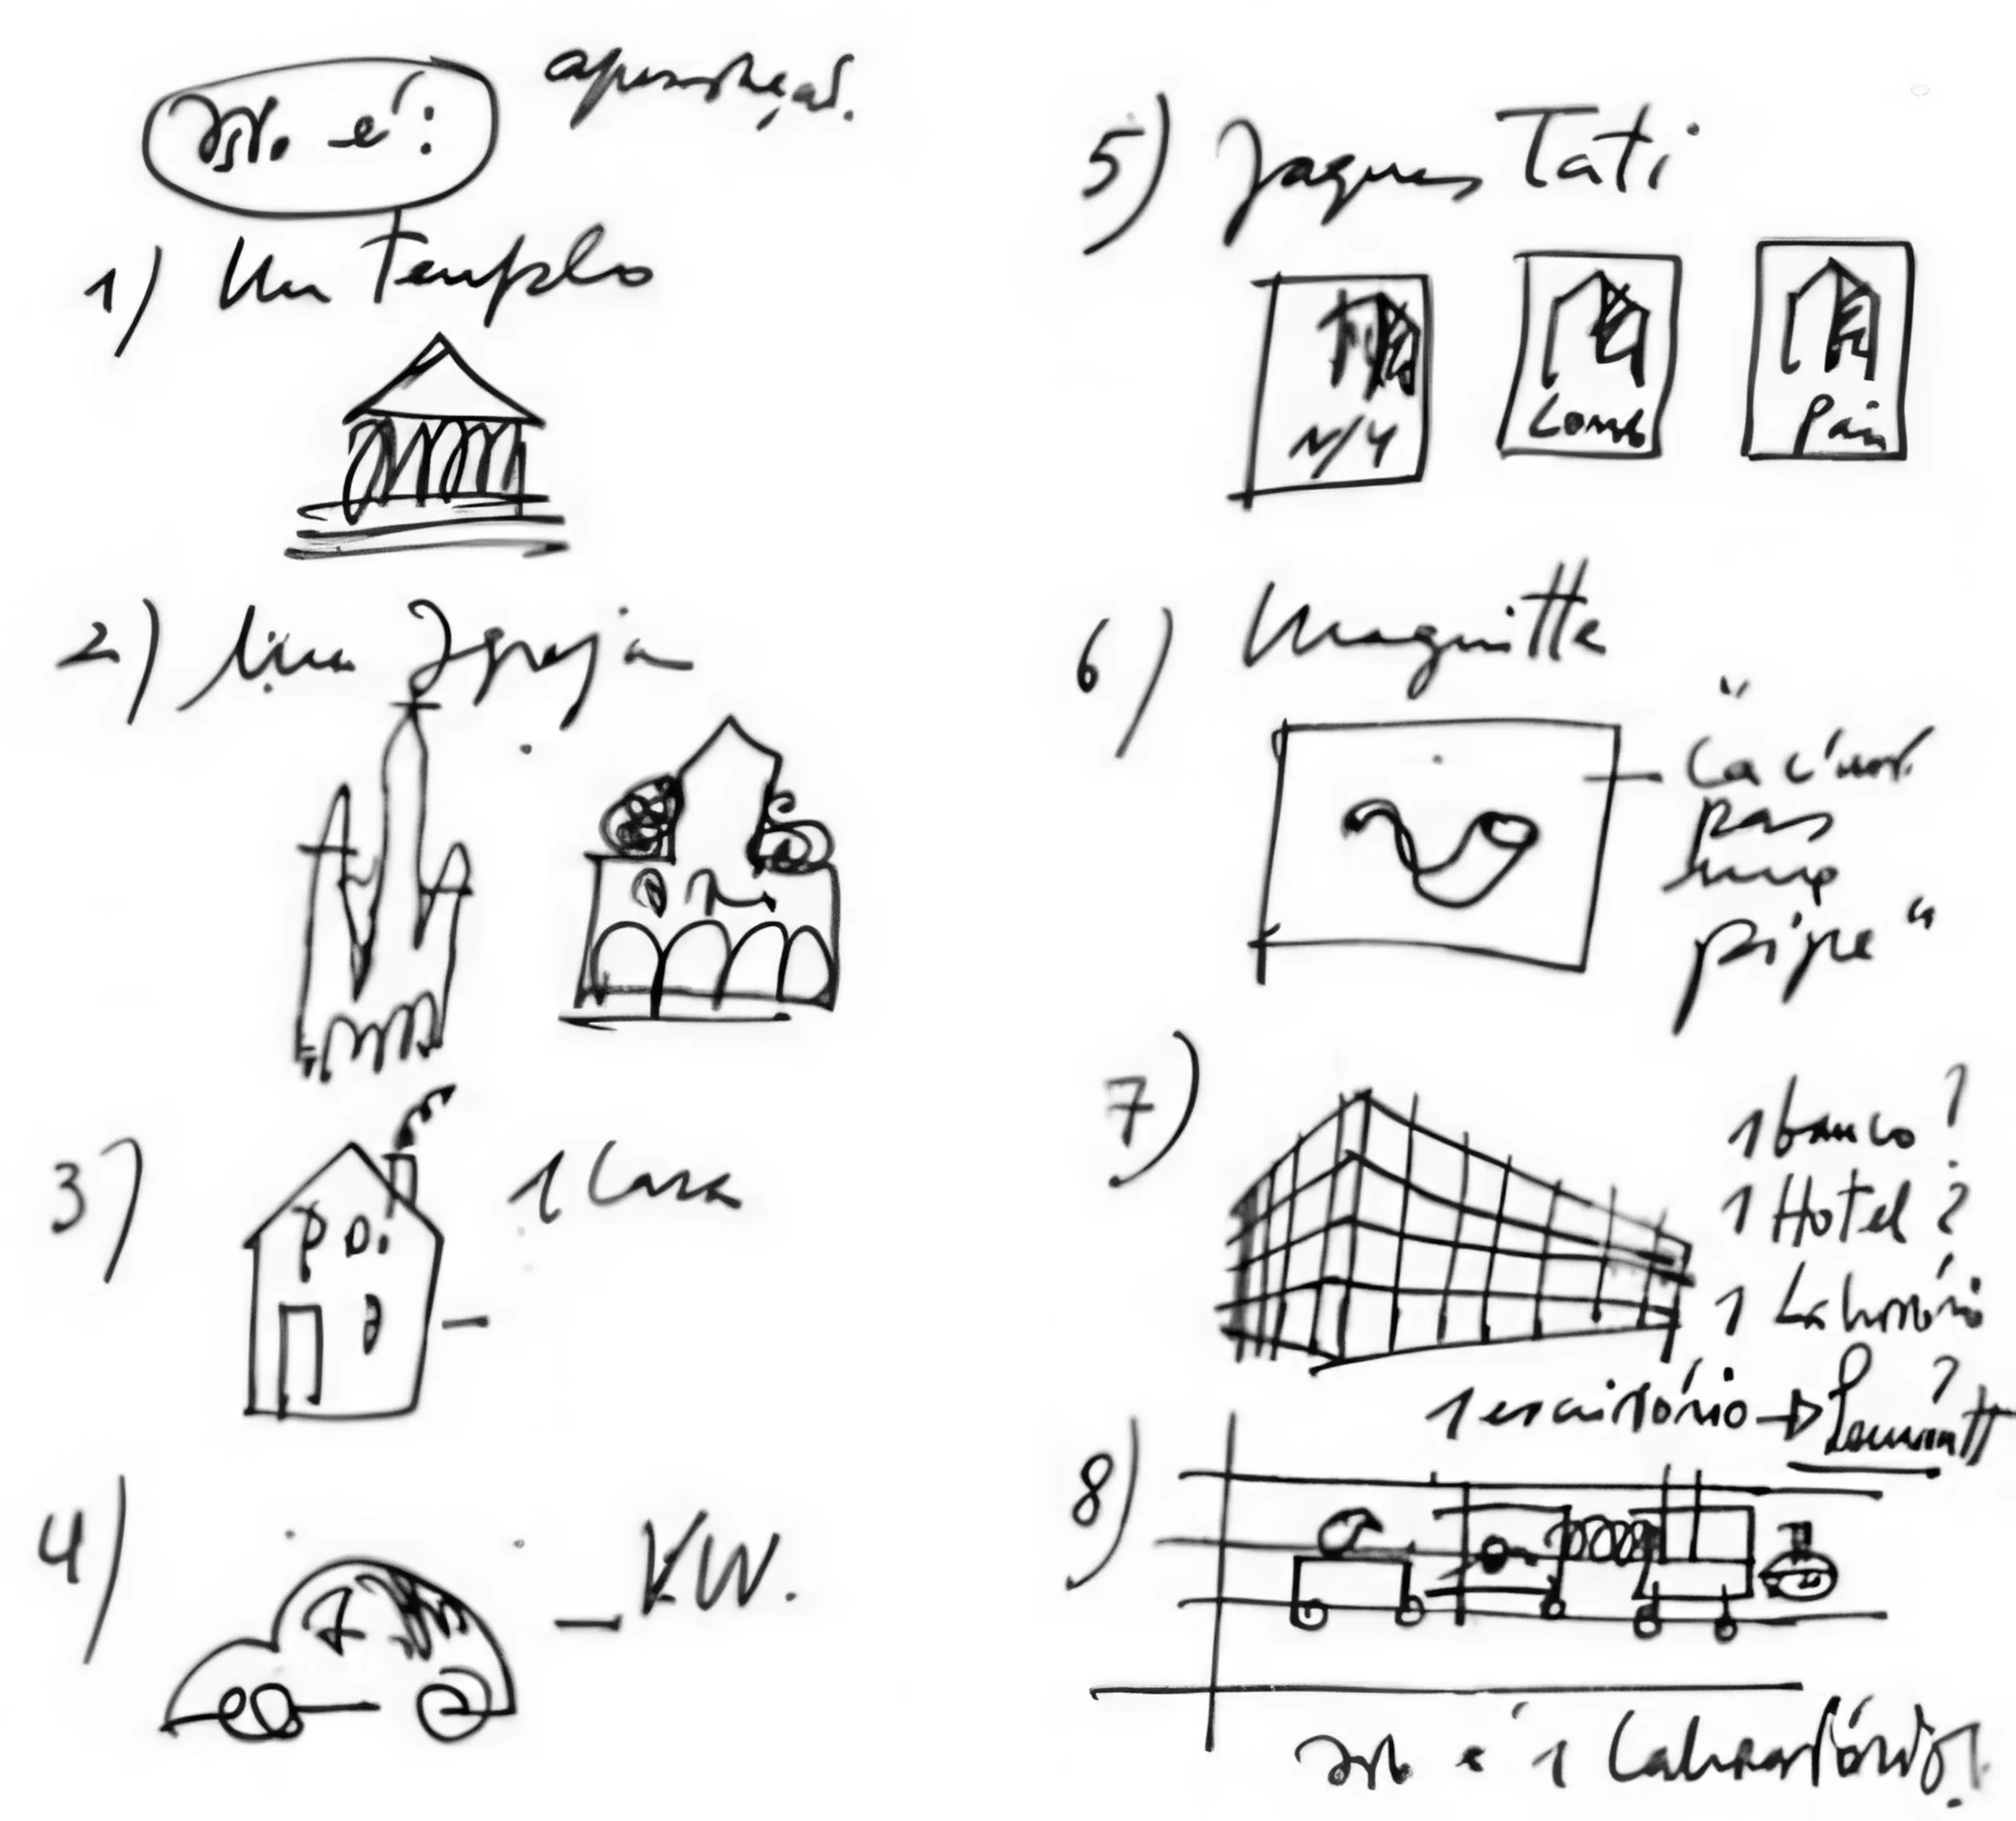 Isto é:
1) Um Templo
2) Uma Igreja
3) 1 Casa
4) VW.
5) Jaques Tati
N/Y
Lond
Paris
6) Magritte
"Ça c'est
pas
une
pipe"
7)
1 banco ?
1 Hotel ?
1 Laboratório
?
1 escritório →
8)
Isto é 1 Laboratório!